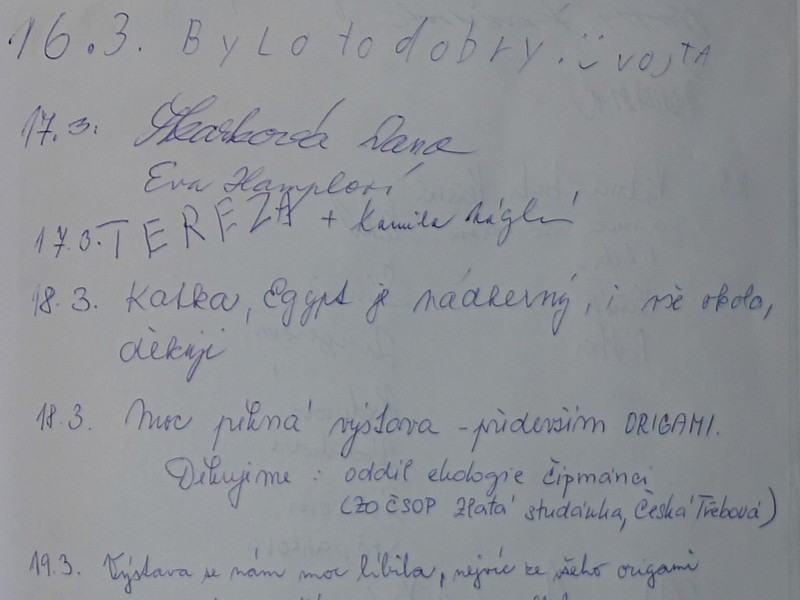 16.3. BYLO to dobrý. vojTA
17.3. Škarková Dana
Eva Hamplová
17.3. TEREZA + Kamila Náglová
18.3. Katka, Egypt je nádherný, i vše okolo,
děkuji
18.3. Moc pěkná výstava - především ORIGAMI.
Děkujeme : oddíl ekologie Čipmánci
(ZO ČSOP Zlatá studánka, Česká Třebová)
19.3. Výstava se nám moc líbila, nejvíc ze všeho origami